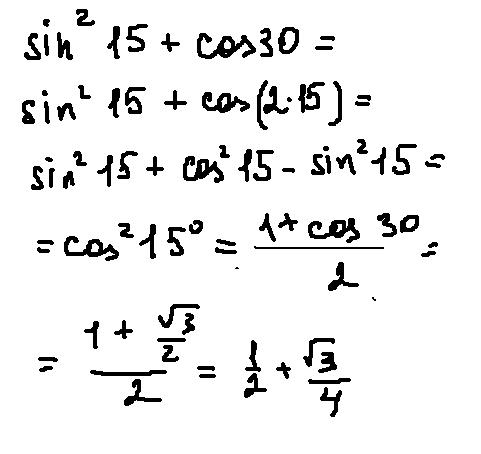 sin² 15 + cos30 =
sin² 15 + cos(2·15) =
sin² 15 + cos² 15 - sin² 15 =
= cos² 15° = (1 + cos 30)/2 =
= (1 + √3/2)/2 = 1/2 + √3/4